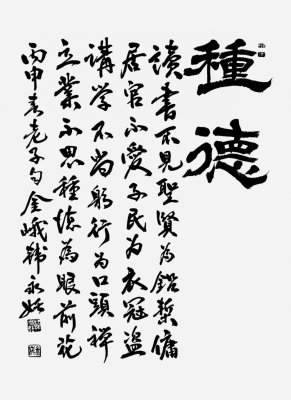 種德
讀書不見聖賢為鉛槧傭
居官不愛子民為衣冠盜
講學不尚躬行為口頭禪
立業不思種德為眼前花
丙申春老子句金峨韩永